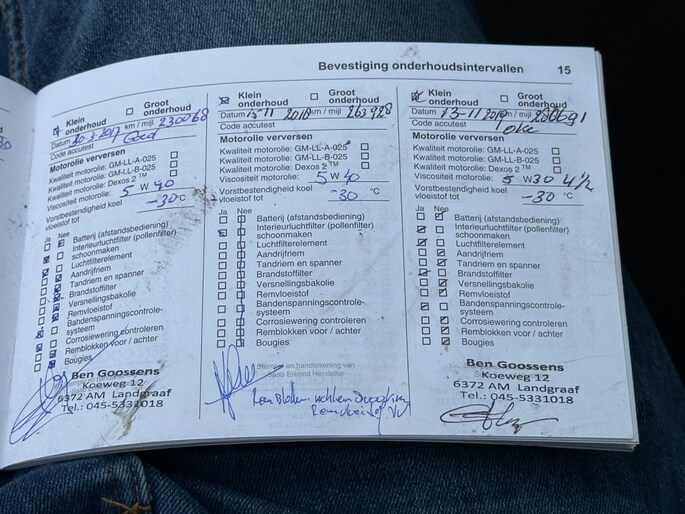 Bevestiging onderhoudsintervallen 15
Klein onderhoud
Groot onderhoud
Datum 20-3-2017 km / mijl 230068
Code accutest Goed
Motorolie verversen
Kwaliteit motorolie: GM-LL-A-025
Kwaliteit motorolie: GM-LL-B-025
Kwaliteit motorolie: Dexos 2 TM
Viscositeit motorolie: 5 W 40
Vorstbestendigheid koel
vloeistof tot -30 °C
Ja Nee
Batterij (afstandsbediening)
Interieurluchtfilter (pollenfilter)
schoonmaken
Luchtfilterelement
Aandrijfriem
Tandriem en spanner
Brandstoffilter
Versnellingsbakolie
Remvloeistof
Bandenspanningscontrole-
systeem
Corrosiewering controleren
Remblokken voor / achter
Bougies
Ben Goossens
Koeweg 12
6372 AM Landgraaf
Tel.: 045-5331018
Klein onderhoud
Groot onderhoud
Datum 15-11 2018 km / mijl 263928
Code accutest
Motorolie verversen
Kwaliteit motorolie: GM-LL-A-025
Kwaliteit motorolie: GM-LL-B-025
Kwaliteit motorolie: Dexos 2 TM
Viscositeit motorolie: 5 W 40
Vorstbestendigheid koel
vloeistof tot -30 °C
Ja Nee
Batterij (afstandsbediening)
Interieurluchtfilter (pollenfilter)
schoonmaken
Luchtfilterelement
Aandrijfriem
Tandriem en spanner
Brandstoffilter
Versnellingsbakolie
Remvloeistof
Bandenspanningscontrole-
systeem
Corrosiewering controleren
Remblokken voor / achter
Bougies
Stempel en handtekening van
Saab Erkend Hersteller
Klein onderhoud
Groot onderhoud
Datum 13-11 2019 km / mijl 280691
Code accutest oke
Motorolie verversen
Kwaliteit motorolie: GM-LL-A-025
Kwaliteit motorolie: GM-LL-B-025
Kwaliteit motorolie: Dexos 2 TM
Viscositeit motorolie: 5 W 30 4 1/2
Vorstbestendigheid koel
vloeistof tot -30 °C
Ja Nee
Batterij (afstandsbediening)
Interieurluchtfilter (pollenfilter)
schoonmaken
Luchtfilterelement
Aandrijfriem
Tandriem en spanner
Brandstoffilter
Versnellingsbakolie
Remvloeistof
Bandenspanningscontrole-
systeem
Corrosiewering controleren
Remblokken voor / achter
Bougies
Ben Goossens
Koeweg 12
6372 AM Landgraaf
Tel.: 045-5331018